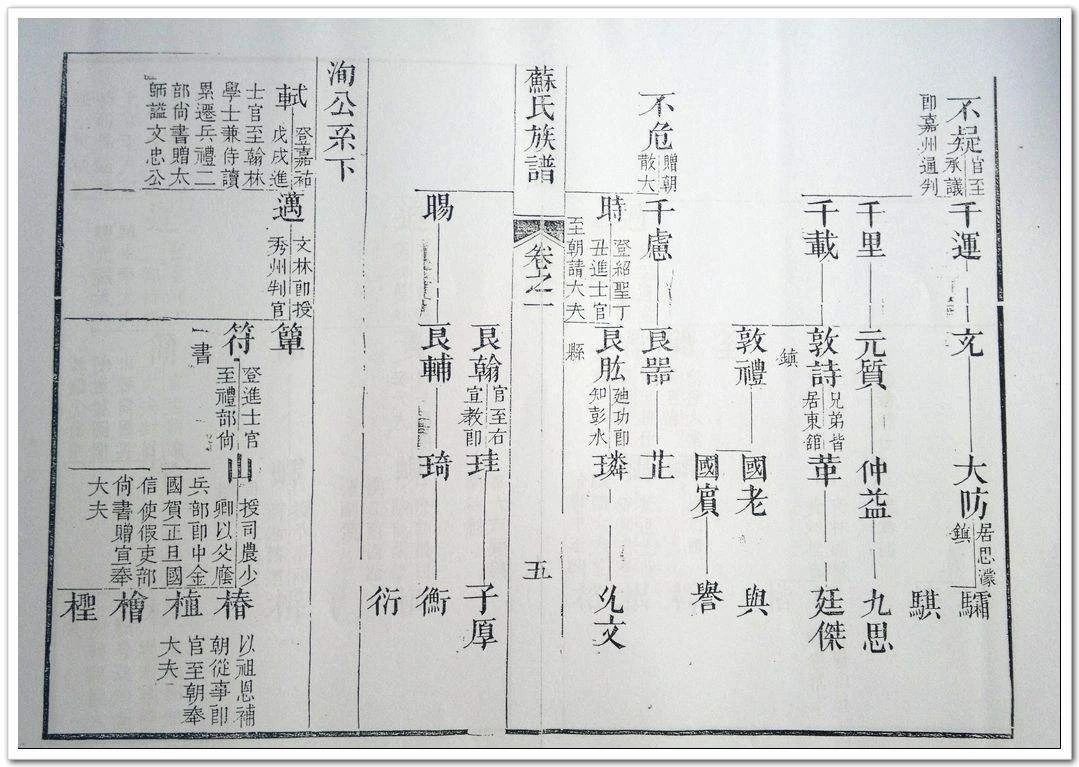 不疑
官至
承議
郎嘉州通判
千運
充
大防
居思濛
鎮
驌
騏
千里
元質
仲益
九思
千載
敦詩
兄弟皆
居東舘
鎮
廷傑
敦禮
國老
與
國賓
譽
不危
贈朝
散大
千慮
良器
芷
時
登紹聖丁
丑進士官
至朝請大夫
良肱
廸功郎
知彭水
縣
璘
允文
蘇氏族譜
卷之一
五
良翰
官至右
宣教郎
珪
子厚
晹
良輔
琦
衡
衍
洵公系下
軾
登嘉祐
戊戌進
士官至翰林
學士兼侍讀
累遷兵禮二
部尙書贈太
師謚文忠公
邁
文林郎授
秀州判官
簞
符
登進士官
至禮部尙
書
山
授司農少
卿以父廕
兵部郎中金
國賀正旦國
信使假吏部
尙書贈宣奉
大夫
椿
以祖恩補
朝從事郎
官至朝奉
大夫
植
檜
檉